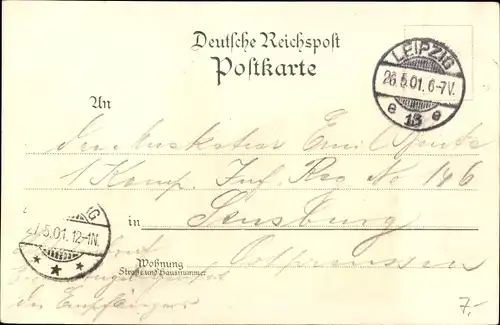 Deutsche Reichspost
Postkarte
LEIPZIG
26.5.01. 6-7V.
e 13 e
An
den Musketier Emil
1 Komp. Inf. Reg No 146
in Sensburg
Ostpreussen
5.01. 12-1N.
Wohnung
Straße und Hausnummer
des Empfängers
7.-